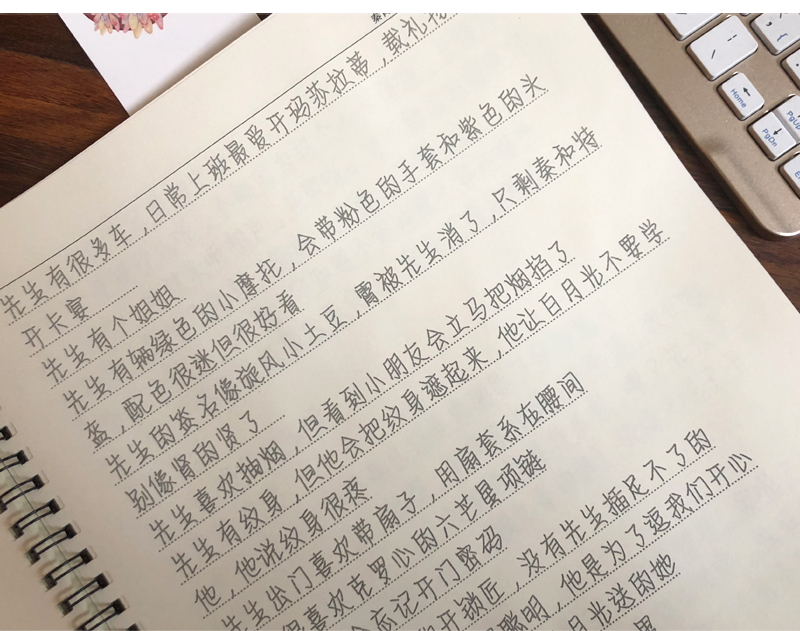 先生有很多车，日常上班最爱开玛莎拉蒂，载礼花
开卡宴
先生有个姐姐
先生有辆绿色的小摩托，会带粉色的手套和紫色的头
盔，配色很迷但很好看
先生的签名像旋风小土豆，霄被先生消了，只剩秦和特
别像肾的贤了
先生喜欢抽烟，但看到小朋友会立马把烟掐了
先生有纹身，但他会把纹身遮起来，他让白月光不要学
他，他说纹身很疼
先生出门喜欢带扇子，用扇套系在腰间
很喜欢克罗心的六芒星项链
忘记开门密码
开锁匠，没有先生插足不了的
聪明，他是为了逗我们开心
月光送的她
Home
PgUp
PgDn